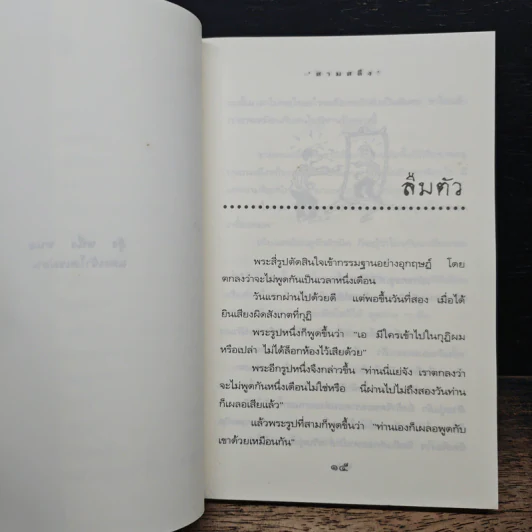 ลืมตัว
พระสี่รูปตัดสินใจเข้ากรรมฐานอย่างอุกฤษฏ์ โดย
ตกลงว่าจะไม่พูดกันเป็นเวลาหนึ่งเดือน
วันแรกผ่านไปด้วยดี แต่พอขึ้นวันที่สอง เมื่อได้
ยินเสียงผิดสังเกตที่กุฏิ
พระรูปหนึ่งก็พูดขึ้นว่า "เอ มีใครเข้าไปในกุฏิผม
หรือเปล่า ไม่ได้ล็อกห้องไว้เสียด้วย"
พระอีกรูปหนึ่งจึงกล่าวขึ้น "ท่านนี่แย่จัง เราตกลงว่า
จะไม่พูดกันหนึ่งเดือนไม่ใช่หรือ นี่ผ่านไปไม่ถึงสองวันท่าน
ก็เผลอเสียแล้ว"
แล้วพระรูปที่สามก็พูดขึ้นว่า "ท่านเองก็เผลอพูดกับ
เขาด้วยเหมือนกัน"
๑๕